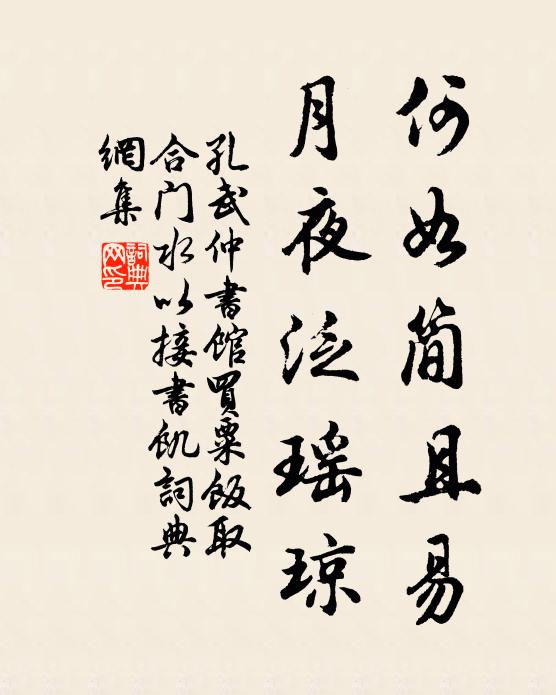 何如简且易
月夜泛瑶琼
孔武仲書館買粟飯取
合门水以接書飢詞典
網集
詞典
网印